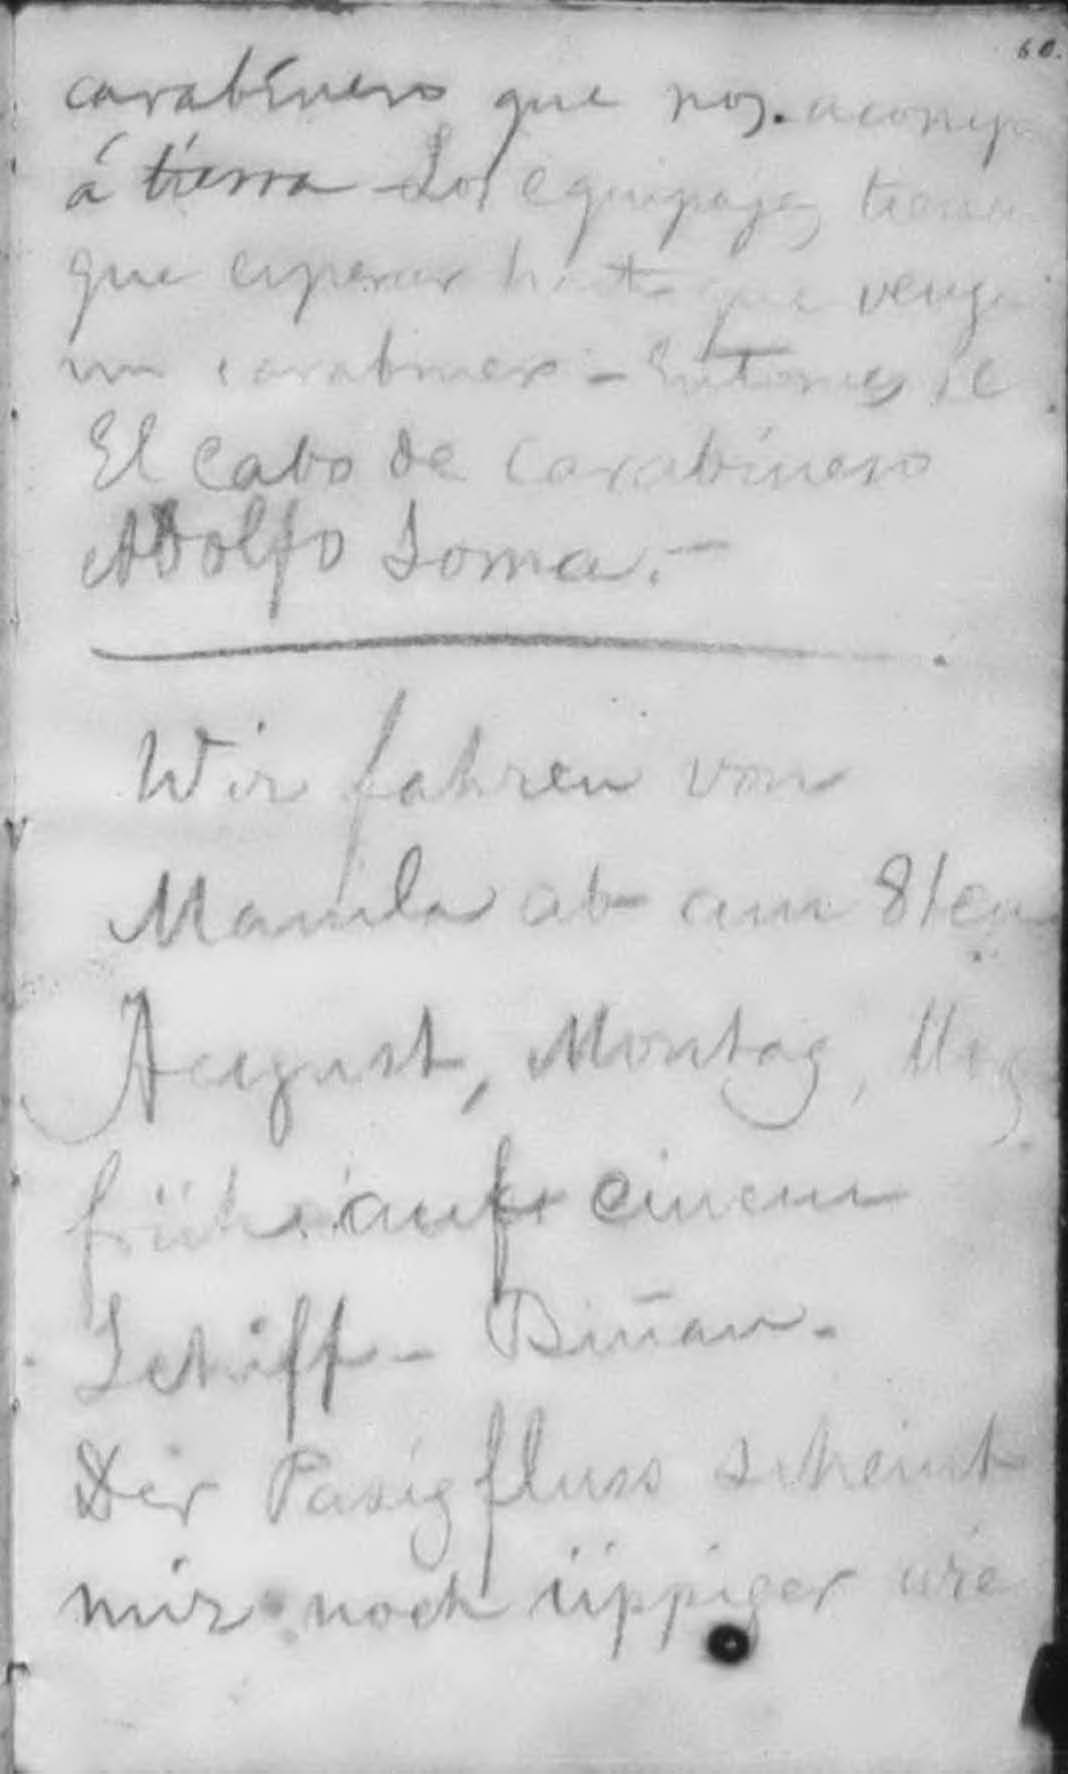 60.
carabinero que nos. acompa
á tierra - Los equipajes tienen
que esperar hasta que venga
un carabinero - Entonces se
El cabo de carabinero
Adolfo Soma. -
Wir fahren von
Manila ab am 8ten
August, Montag,
früh auf einem
Schiff - Biñan -
Der Pasigfluss scheint
mir noch üppiger wie